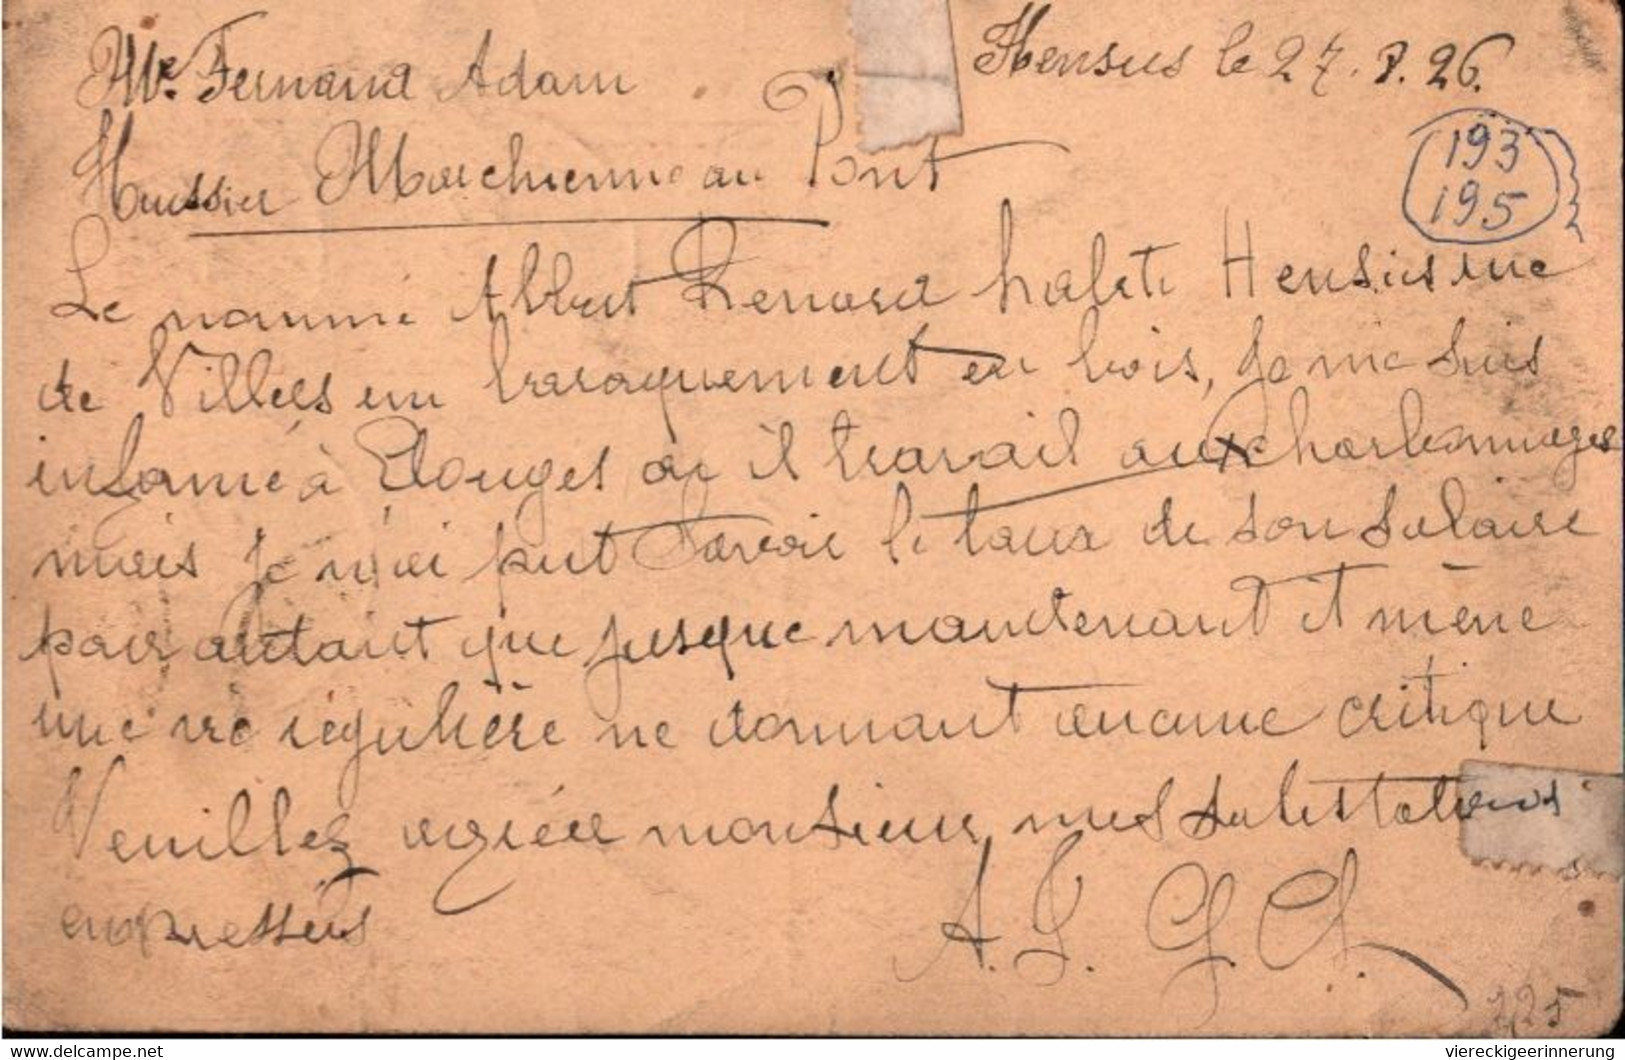 Mr Fernand Adam
Hensies le 27.8.26.
Huissier Marchienne au Pont
193
195
Le nommé Albert Renard habite Hensies rue
de Villers un baraquement en bois, je me suis
informé à Elouges ou il travail aux charbonnages
mais je n'ai put savoir le taux de son salaire
pour autant que jusque maintenant il mène
une vie régulière ne donnant aucune critique
Veuillez agréer monsieur mes salutations
empressées
225
delcampe.net
viereckigeerinnerung